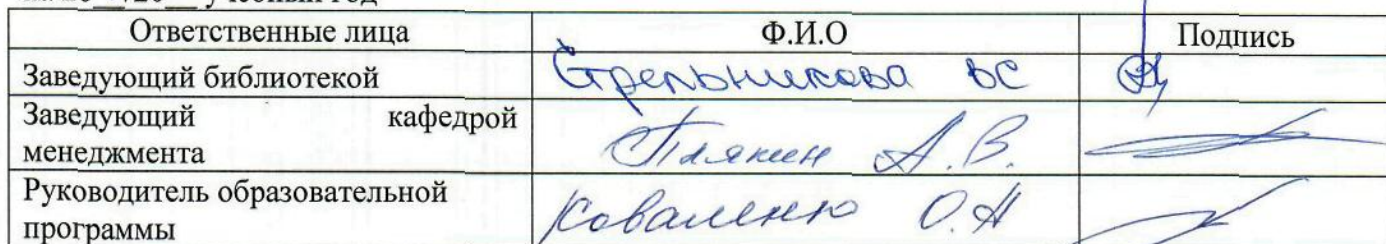 учебный год
Ответственные лица Ф.И.О Подпись
Заведующий библиотекой Стрельникова ВС
Заведующий кафедрой
менеджмента Плякин А.В.
Руководитель образовательной
программы Коваленко О.Н